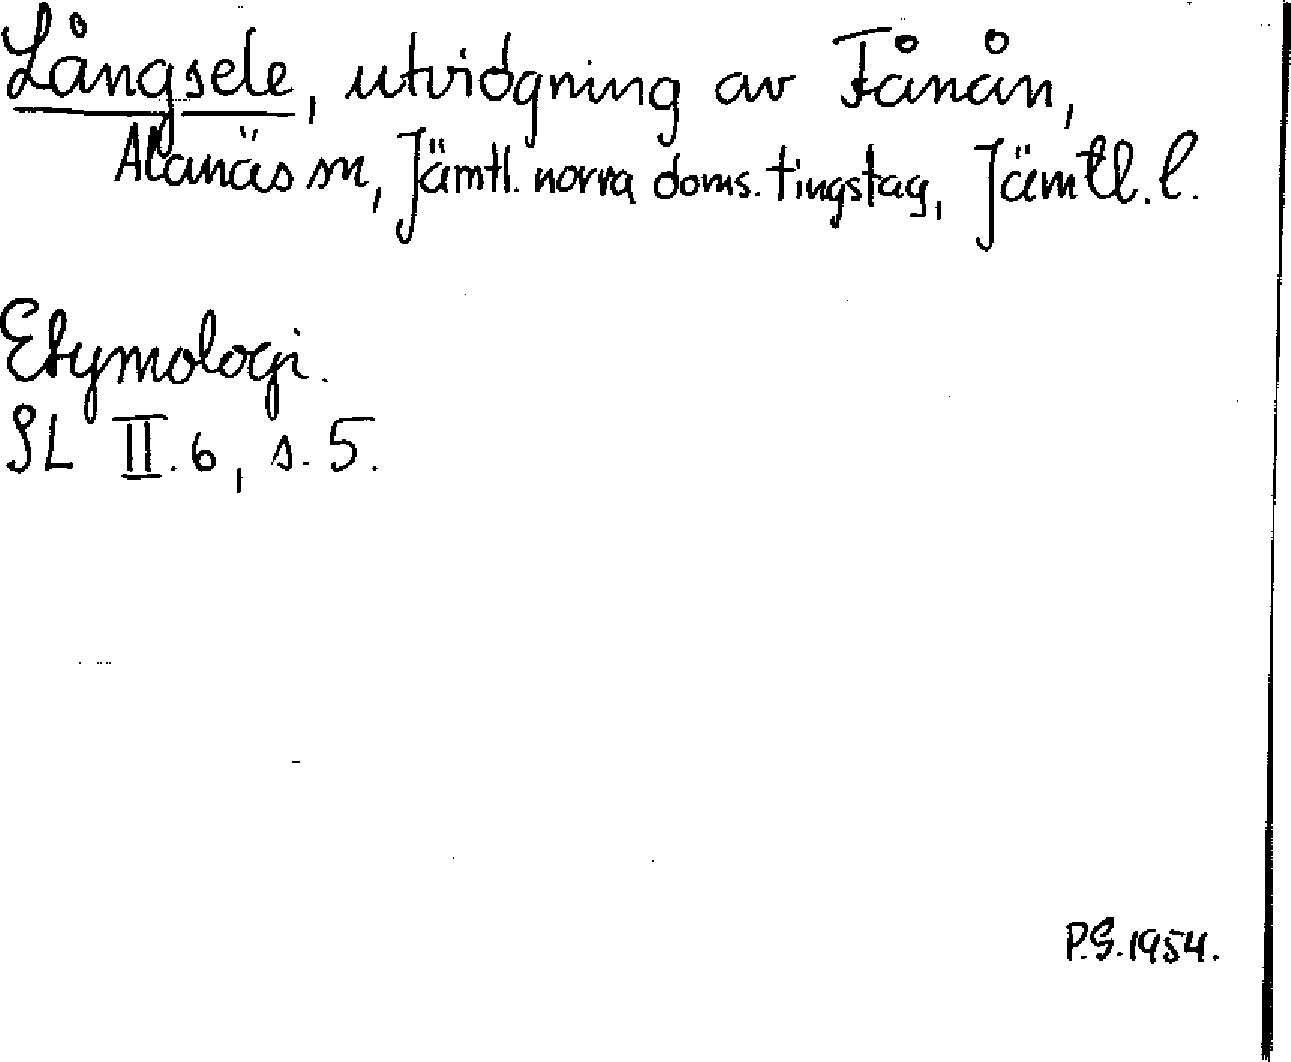 Långsele, utvidgning av Fånån,
Alanäs sn, Jämtl. norra doms. tingslag, Jämtl. l.
Etymologi.
SL II.6, s. 5.
P.S. 1954.